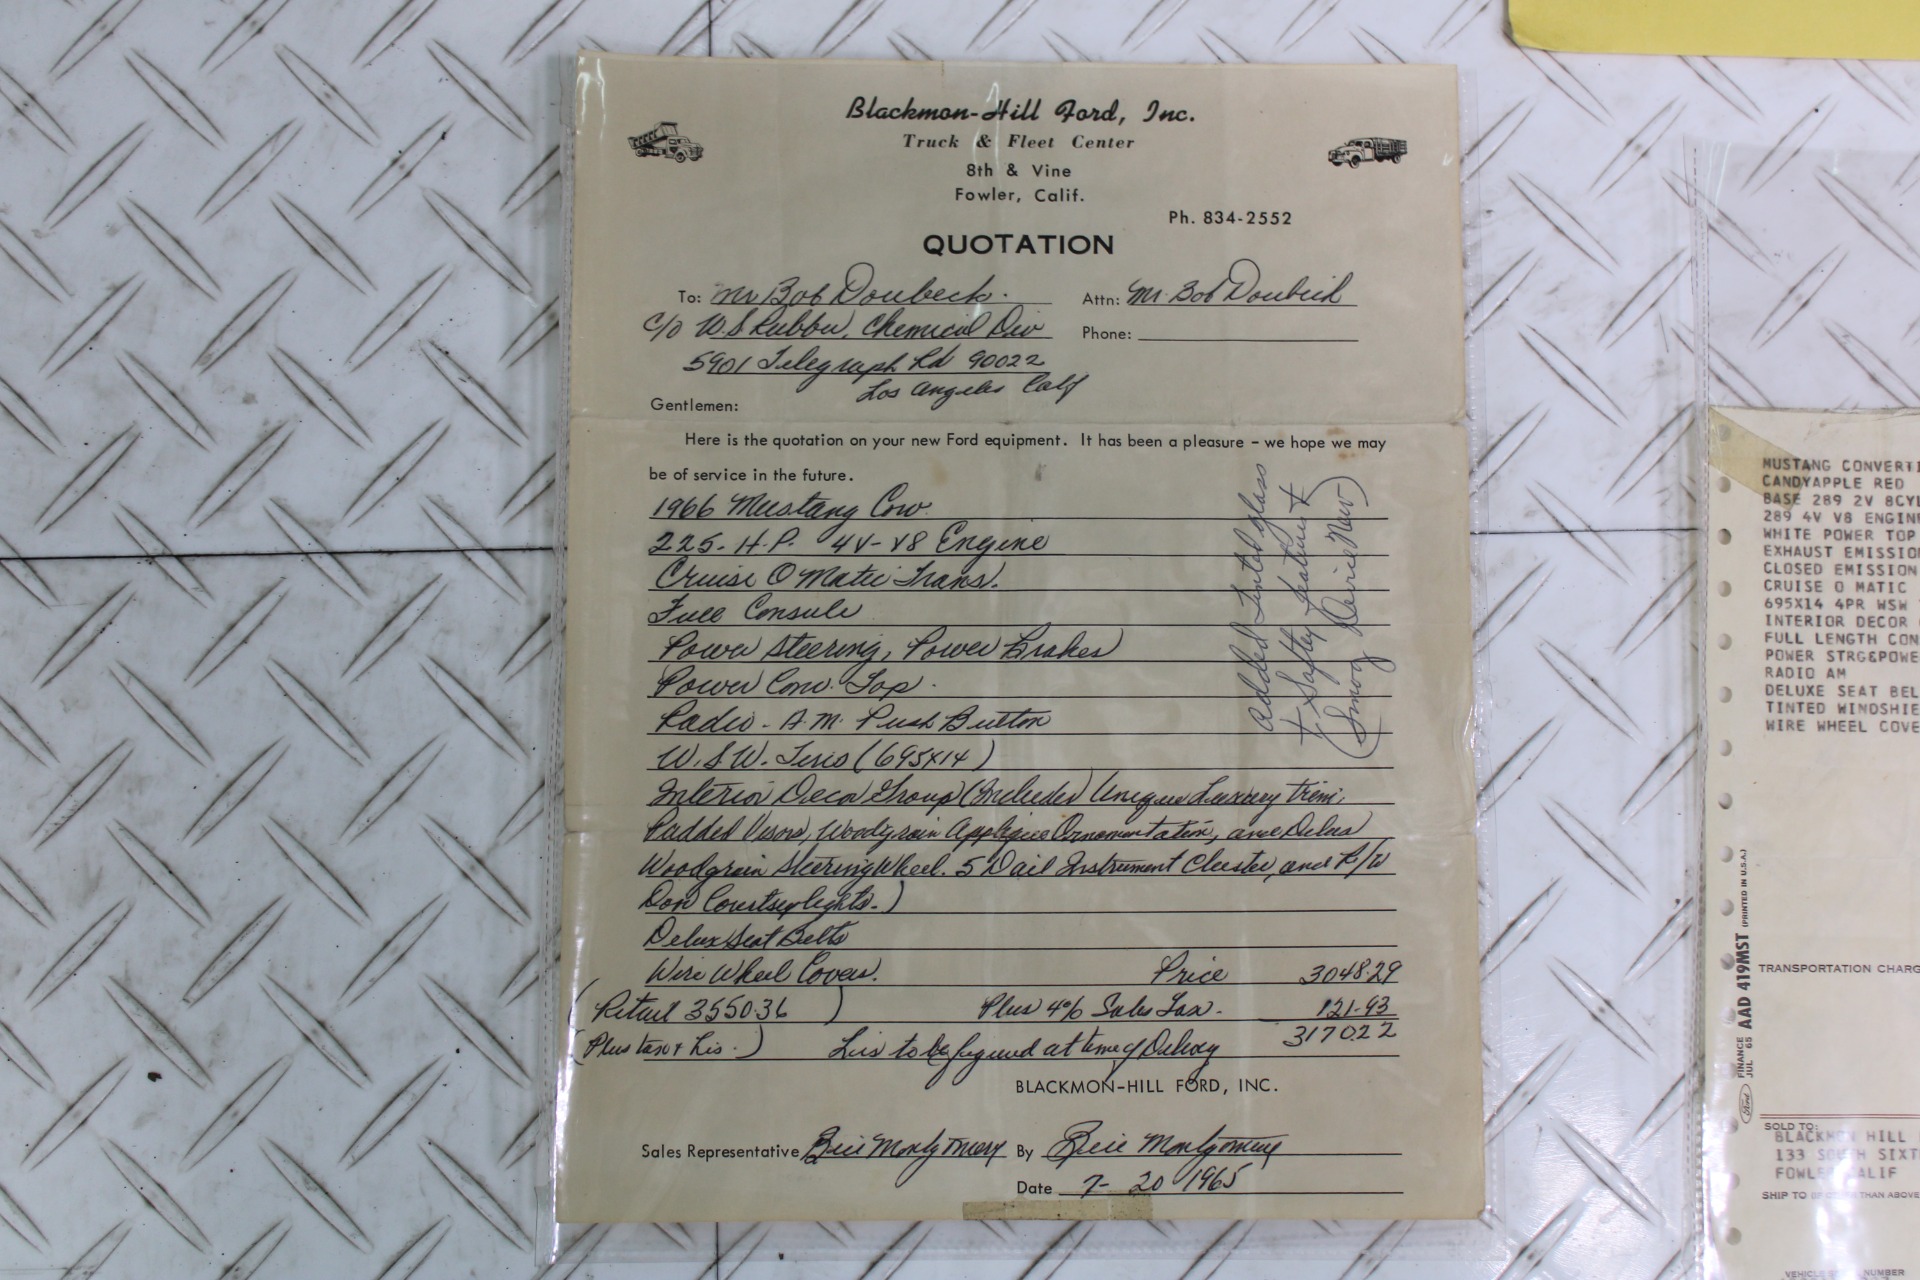 Blackmon-Hill Ford, Inc.
Truck & Fleet Center
8th & Vine
Fowler, Calif.
Ph. 834-2552
QUOTATION
To: Mr Bob Doubeck. Attn: Mr. Bob Doubeck
c/o U.S Rubber, Chemical Div Phone:
5901 Telegraph Rd 90022
Los Angeles Calif
Gentlemen:
Here is the quotation on your new Ford equipment. It has been a pleasure – we hope we may
be of service in the future.
1966 Mustang Conv.
225. H.P. 4V-V8 Engine
Cruise O Matic Trans.
Full Console
Power Steering, Power Brakes
Power Conv. Top.
Radio - A.M. Push Button
W.S.W. Tires (695x14)
Interior Decor Group (Includes) Unique Luxury trim,
Padded Visors, Woodgrain Applique Ornamentation, and Delux
Woodgrain Steering Wheel. 5 Dail Instrument Cluster, and R/W
Door Courtsey lights.)
Delux Seat Belts
Wire Wheel Covers. Price 3048.29
(Retail 3550.36) Plus 4% Sales Tax. 121.93
(Plus tax & Lis.) Lis to be figured at time of Delivey 3170.22
added Tinted glass
+ Saftey features +
(Smog Device New)
BLACKMON-HILL FORD, INC.
Sales Representative Bill Montgomery By Bill Montgomery
Date 7- 20 1965
MUSTANG CONVERTI
CANDYAPPLE RED
BASE 289 2V 8CYL
289 4V V8 ENGIN
WHITE POWER TOP
EXHAUST EMISSION
CLOSED EMISSION
CRUISE O MATIC
695X14 4PR WSW
INTERIOR DECOR
FULL LENGTH CON
POWER STRG&POWE
RADIO AM
DELUXE SEAT BEL
TINTED WINDSHIE
WIRE WHEEL COVE
TRANSPORTATION CHARG
Ford FINANCE JUL 65 AAD 419MST (PRINTED IN U.S.A.)
SOLD TO:
BLACKMON HILL
133 SOUTH SIXT
FOWLER CALIF
SHIP TO (IF OTHER THAN ABOVE
VEHICLE NUMBER